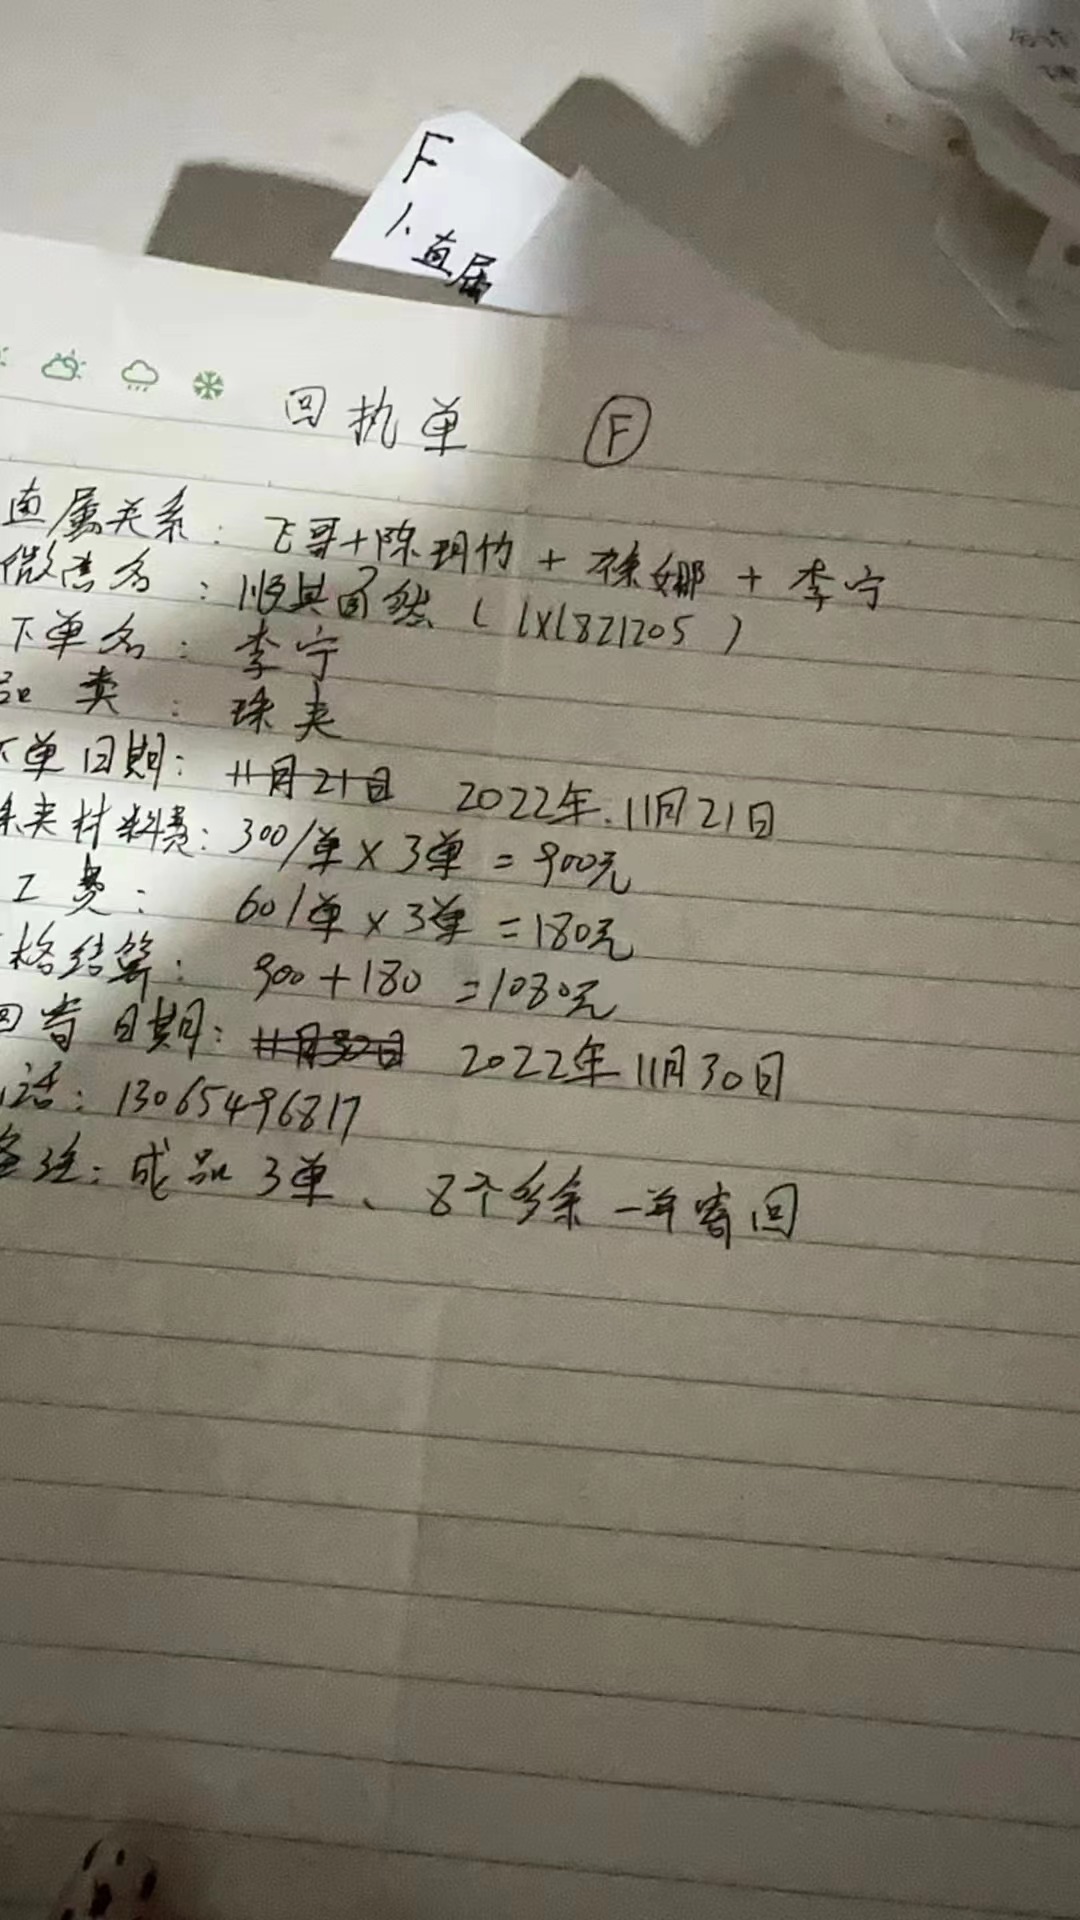 F
小直属
回执单 F
直属关系：飞哥+陈玥竹+徐娜+李宁
微信名：顺其自然（lxl821205）
下单名：李宁
品类：珠夹
下单日期：11月21日 2022年.11月21日
珠夹材料费：300/单×3单=900元
工费：60/单×3单=180元
格结算：900+180=1080元
回寄日期：11月30日 2022年11月30日
话：13065496817
备注：成品3单、8个多余一并寄回